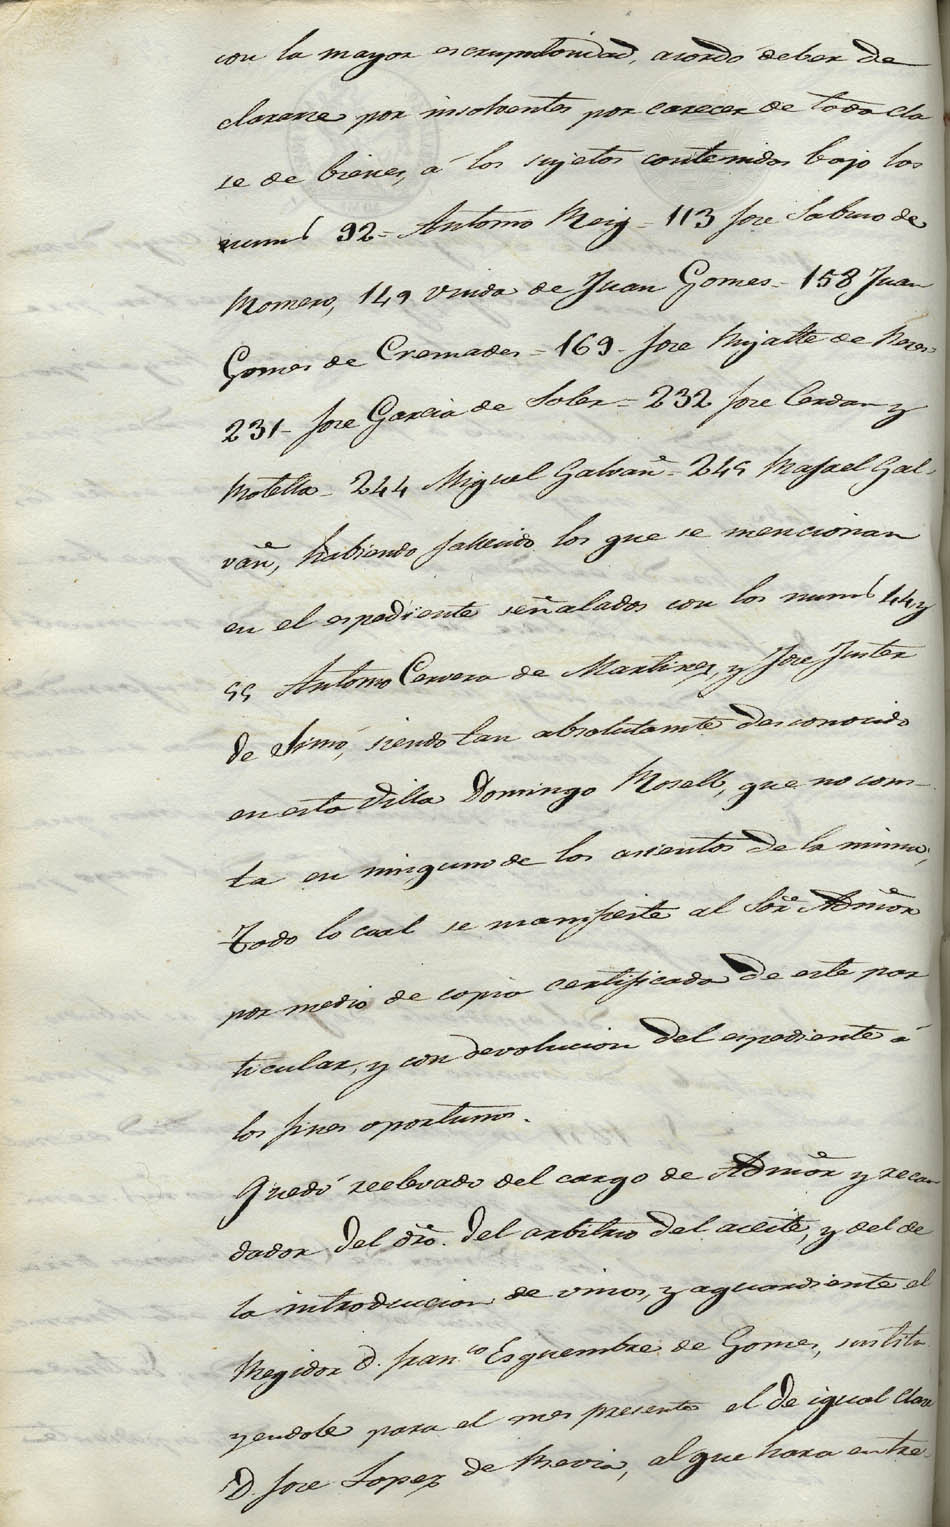 con la mayor escrupulosidad, acordó deber de
clararse por insolventes por carecer de toda cla
se de bienes, á los sujetos contenidos bajo los
num.s 92= Antonio Reig= 113 Jose Sabuco de
Romero, 149 viuda de Juan Gomes= 158 Juan
Gomes de Cremades= 169= Jose Rizatte de
231= Jose Garcia de Soler= 232 Jose Cerdan y
Motella= 244 Miguel Galvañ= 245 Rafael Gal-
vañ, habiendo fallecido los que se mencionan
en el espediente señalados con los num.s 44 y
55 Antonio Cervera de Martinez, y Jose Juster
de Simó, siendo tan absolutamte desconocido
en esta Villa Domingo Rosell, que no cons-
ta en ninguno de los asientos de la misma,
Todo lo cual se manifieste al Sor. Admor
por medio de copia certificada de este par
ticular, y con devolucion del espediente á
los fines oportunos.
Quedó reelevado del cargo de Admor y recau
dador del dro. del arbitrio del aceite, y del de
la introduccion de vinos, y aguardiente el
Regidor D. Fran.co Esquembre de Gomes, sustitu
yendole para el mes presente el de igual clase
D. Jose Lopez de Mevia, al que hara entre-